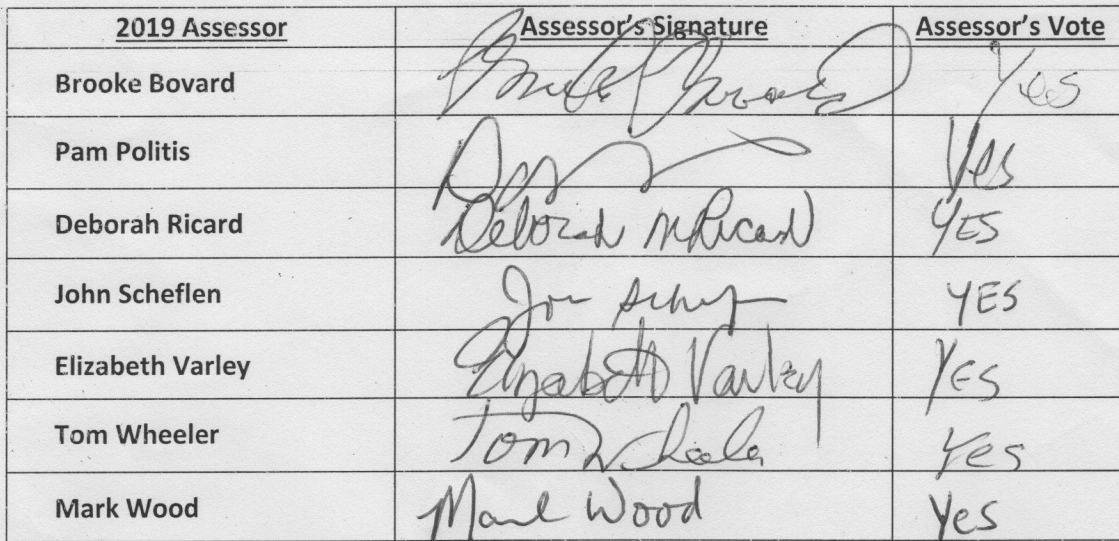 2019 Assessor Assessor's Signature Assessor's Vote
Brooke Bovard Brooke Bovard Yes
Pam Politis Yes
Deborah Ricard Deborah M Ricard YES
John Scheflen John YES
Elizabeth Varley Elizabeth Varley YES
Tom Wheeler Tom Wheeler Yes
Mark Wood Mark Wood Yes